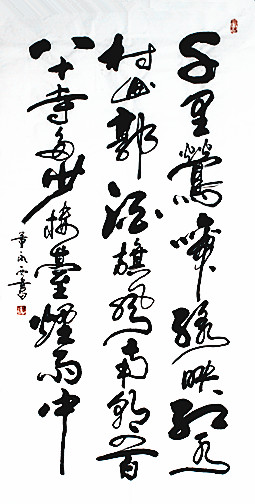 千里鶯啼綠映紅水
村山郭酒旗風南朝四百
八十寺多少樓臺煙雨中
永書